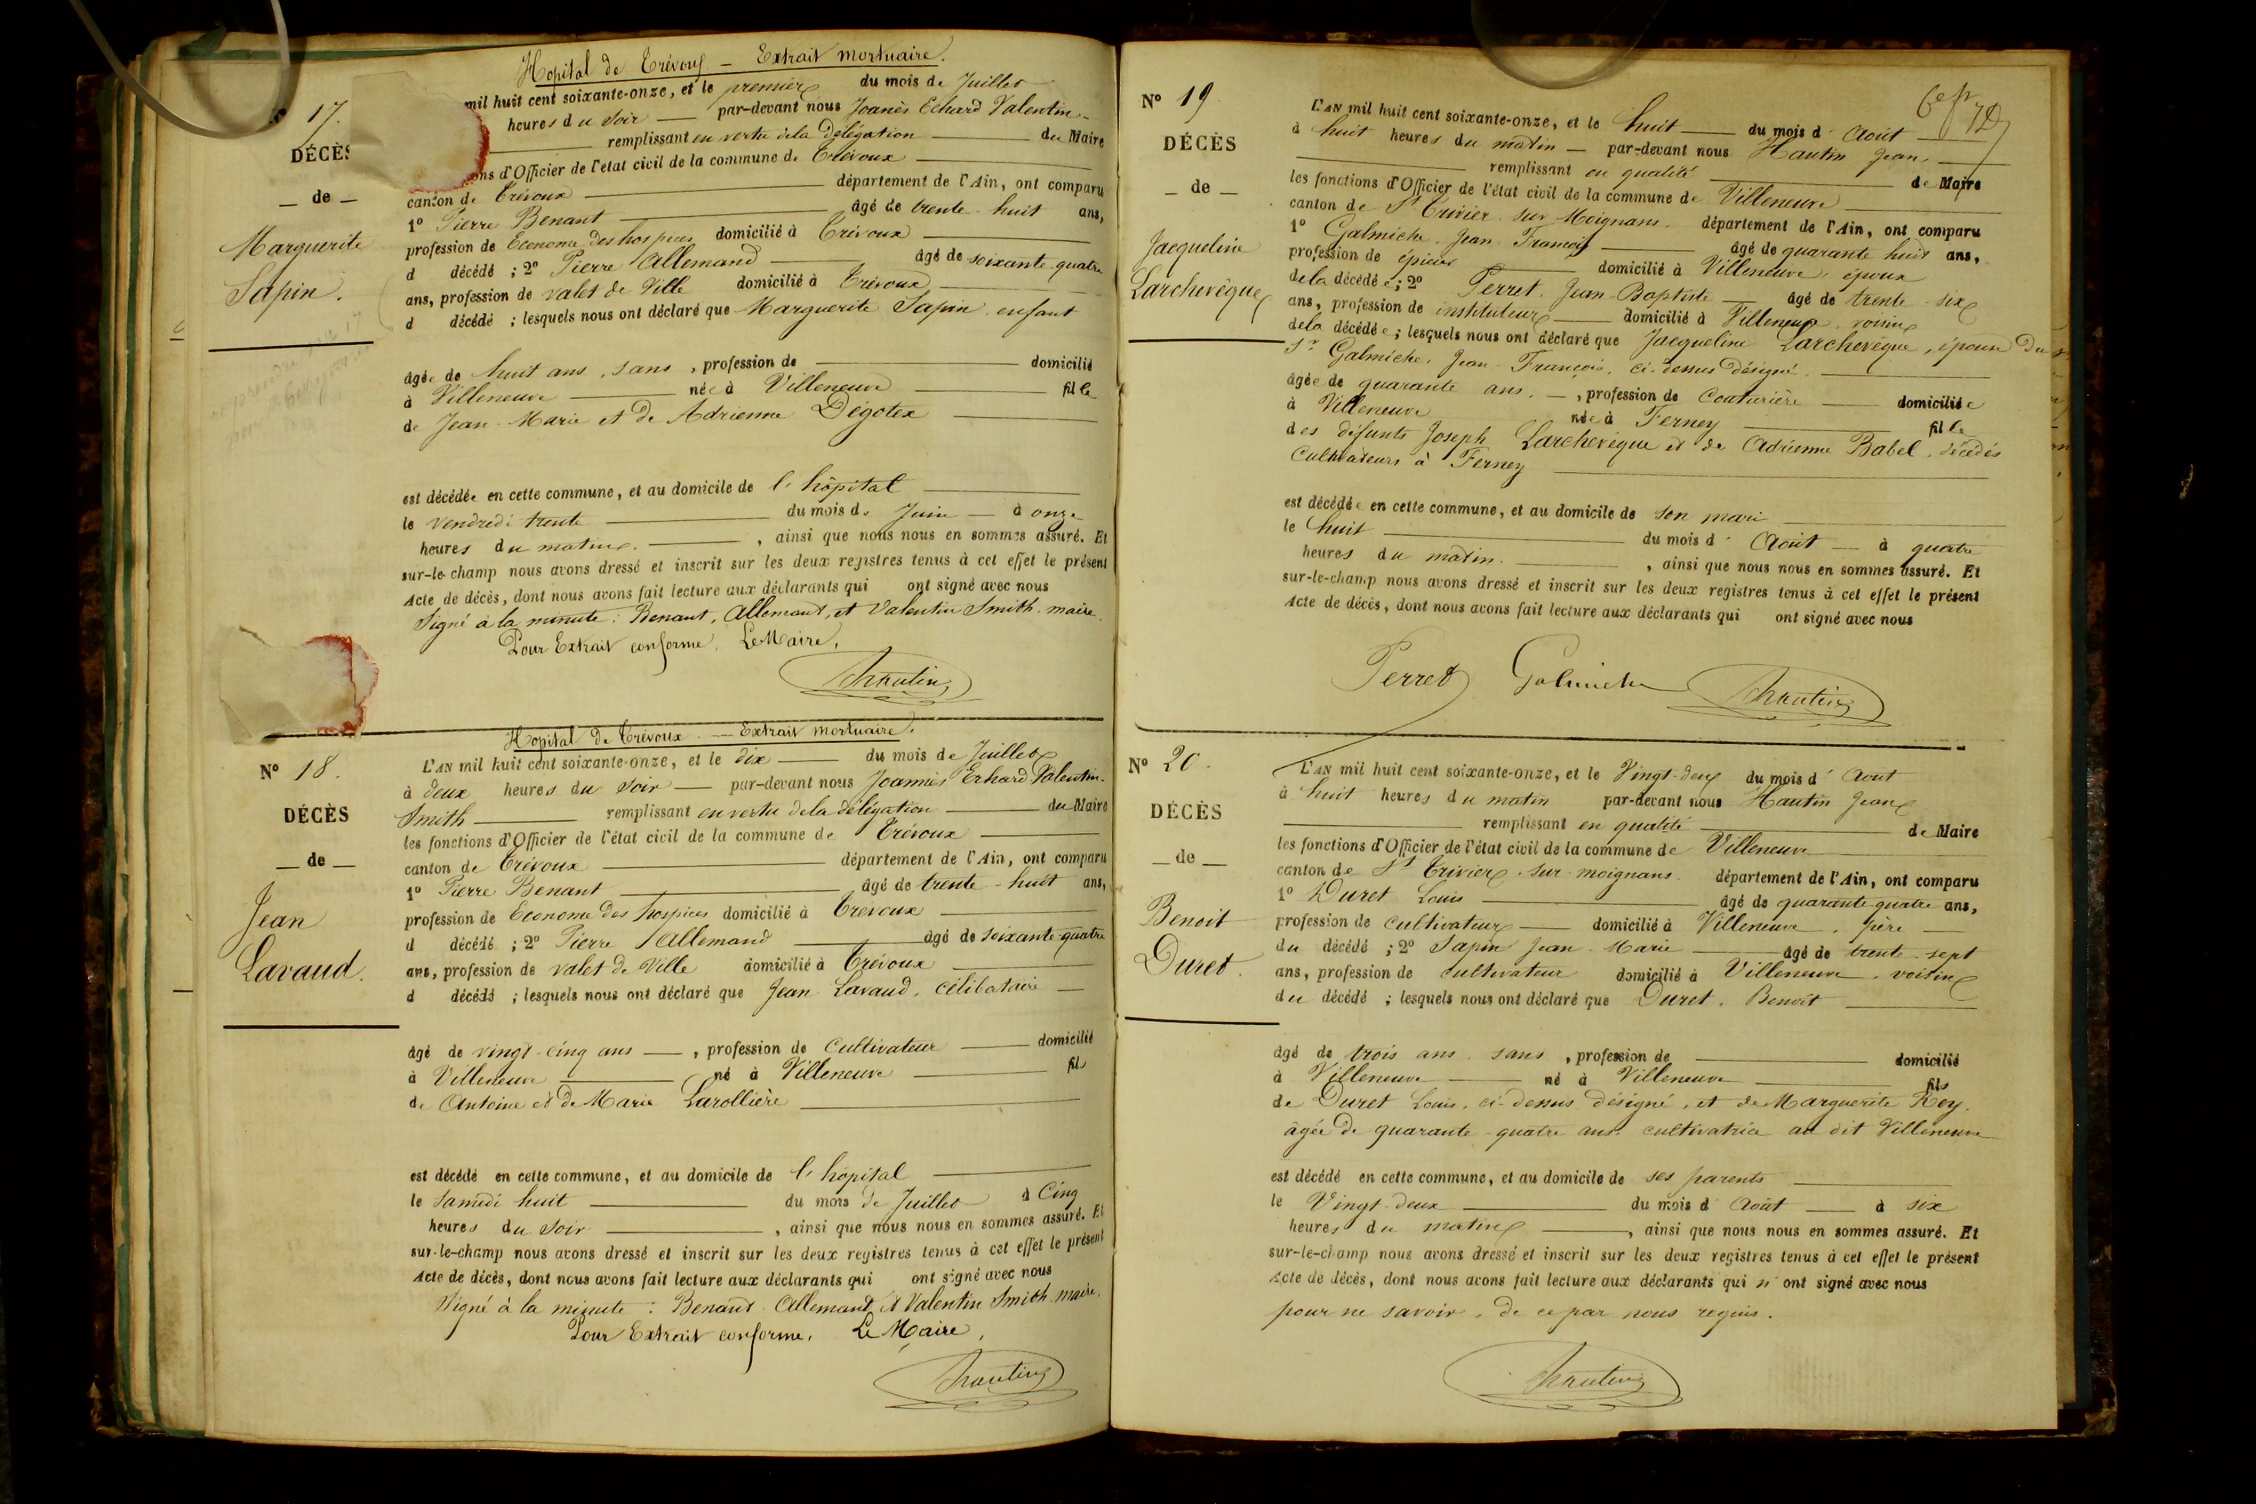 Hopital de Trévoux — Extrait mortuaire.
N° 17.
DÉCÈS
— de —
Marguerite
Sapin.
mil huit cent soixante-onze, et le premier du mois de Juillet
heures du soir — par-devant nous Joanès Echard Valentin-
remplissant en vertu de la délégation — du Maire
ons d'Officier de l'état civil de la commune de Trévoux
canton de Trévoux — département de l'Ain, ont comparu
1° Pierre Benant — âgé de trente-huit ans,
profession de Econome des hospices domicilié à Trévoux
d décédé ; 2° Pierre Allemand — âgé de soixante-quatre
ans, profession de valet de Ville domicilié à Trévoux
d décédé ; lesquels nous ont déclaré que Marguerite Sapin, enfant
âgée de huit ans, sans , profession de — domicilié
à Villeneuve — née à Villeneuve — fille
de Jean-Marie et de Adrienne Dégotex
est décédée en cette commune, et au domicile de l'hôpital
le vendredi trente — du mois de Juin — à onze
heures du matin. — , ainsi que nous nous en sommes assuré. Et
sur-le-champ nous avons dressé et inscrit sur les deux registres tenus à cet effet le présent
Acte de décès, dont nous avons fait lecture aux déclarants qui ont signé avec nous
Signé à la minute : Benant, Allemand, et Valentin Smith, maire.
Pour Extrait conforme, Le Maire,
JHautin
Hopital de Trévoux — Extrait mortuaire.
N° 18.
DÉCÈS
— de —
Jean
Lavaud.
L'AN mil huit cent soixante-onze, et le dix — du mois de Juillet
à deux heures du soir — par-devant nous Joannès Erhard Valentin-
Smith — remplissant en vertu de la délégation — du Maire
les fonctions d'Officier de l'état civil de la commune de Trévoux
canton de Trévoux — département de l'Ain, ont comparu
1° Pierre Benant — âgé de trente-huit ans,
profession de Econome des hospices domicilié à Trévoux
d décédé ; 2° Pierre Allemand — âgé de soixante-quatre
ans, profession de valet de Ville domicilié à Trévoux
d décédé ; lesquels nous ont déclaré que Jean Lavaud, célibataire —
âgé de vingt-cinq ans — , profession de Cultivateur — domicilié
à Villeneuve — né à Villeneuve — fils
de Antoine et de Marie Larollière
est décédé en cette commune, et au domicile de l'hôpital
le samedi huit — du mois de Juillet à Cinq
heures du soir — , ainsi que nous nous en sommes assuré. Et
sur-le-champ nous avons dressé et inscrit sur les deux registres tenus à cet effet le présent
Acte de décès, dont nous avons fait lecture aux déclarants qui ont signé avec nous
Signé à la minute : Benant, Allemand, et Valentin Smith, maire.
Pour Extrait conforme, Le Maire,
JHautin
N° 19
DÉCÈS
— de —
Jacqueline
Larchevèque
L'AN mil huit cent soixante-onze, et le huit — du mois d'Août —
à huit heures du matin — par-devant nous Hautin Jean
remplissant en qualité — de Maire
les fonctions d'Officier de l'état civil de la commune de Villeneuve
canton de St Trivier-sur-Moignans. département de l'Ain, ont comparu
1° Galmiche Jean-François — âgé de quarante huit ans,
profession de épicier — domicilié à Villeneuve, époux
de la décédée ; 2° Perret Jean-Baptiste — âgé de trente-six
ans, profession de instituteur — domicilié à Villeneuve, voisin
de la décédée ; lesquels nous ont déclaré que Jacqueline Larchevèque, épouse du
Sr Galmiche, Jean-François, ci-dessus désigné.
âgée de quarante ans. — , profession de Couturière — domiciliée
à Villeneuve née à Ferney — fille
des défunts Joseph Larchevèque et de Adrienne Babel, décédés
Cultivateurs à Ferney
est décédée en cette commune, et au domicile de son mari
le huit — du mois d'Août — à quatre
heures du matin. — , ainsi que nous nous en sommes assuré. Et
sur-le-champ nous avons dressé et inscrit sur les deux registres tenus à cet effet le présent
Acte de décès, dont nous avons fait lecture aux déclarants qui ont signé avec nous
Perret Galmiche JHautin
N° 20.
DÉCÈS
— de —
Benoit
Duret.
L'AN mil huit cent soixante-onze, et le Vingt-deux du mois d'Aout
à huit heures du matin par-devant nous Hautin Jean
remplissant en qualité — de Maire
les fonctions d'Officier de l'état civil de la commune de Villeneuve
canton de St Trivier-sur-moignans. département de l'Ain, ont comparu
1° Duret Louis — âgé de quarante-quatre ans,
profession de Cultivateur — domicilié à Villeneuve, père —
du décédé ; 2° Sapin Jean-Marie — âgé de trente-sept
ans, profession de cultivateur domicilié à Villeneuve, voisin
du décédé ; lesquels nous ont déclaré que Duret, Benoît
âgé de trois ans, sans , profession de — domicilié
à Villeneuve — né à Villeneuve — fils
de Duret Louis, ci-dessus désigné, et de Marguerite Rey,
âgée de quarante-quatre ans, cultivatrice au dit Villeneuve
est décédé en cette commune, et au domicile de ses parents
le Vingt-deux — du mois d'Août — à six
heures du matin — , ainsi que nous nous en sommes assuré. Et
sur-le-champ nous avons dressé et inscrit sur les deux registres tenus à cet effet le présent
Acte de décès, dont nous avons fait lecture aux déclarants qui n'ont signé avec nous
pour ne savoir, de ce par nous requis.
JHautin